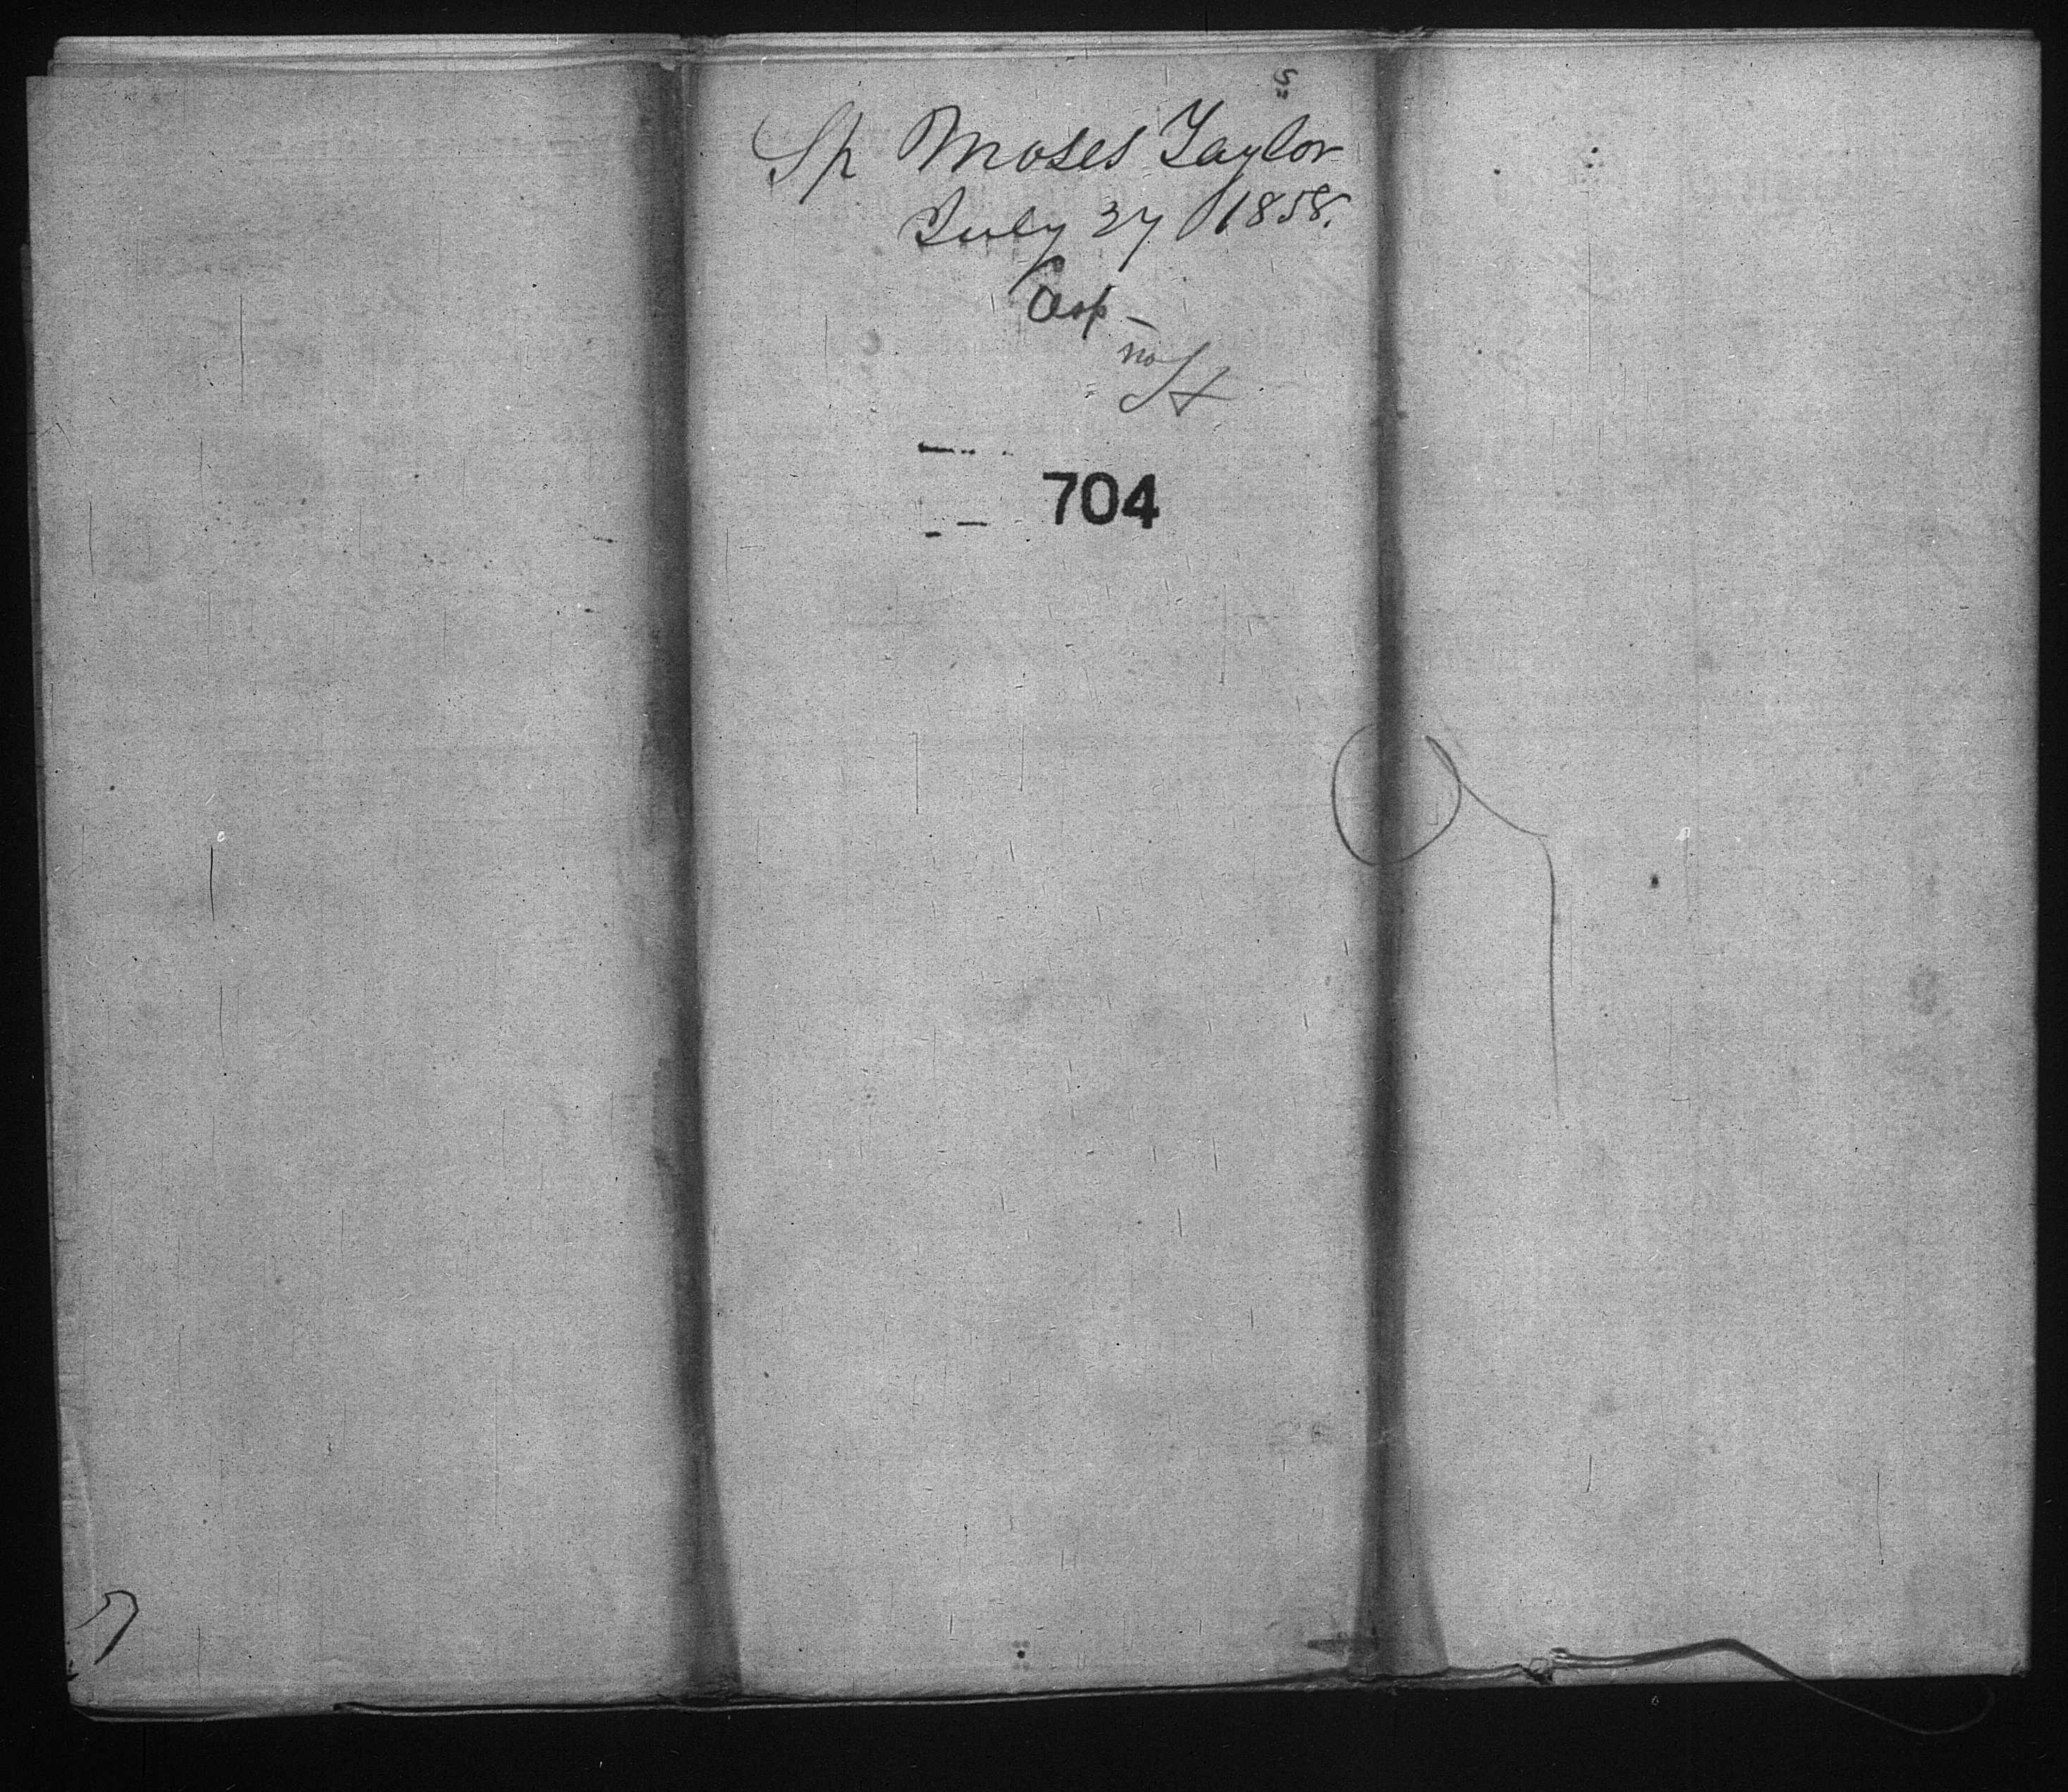 Sp Moses Taylor
July 27 1858.
no
704